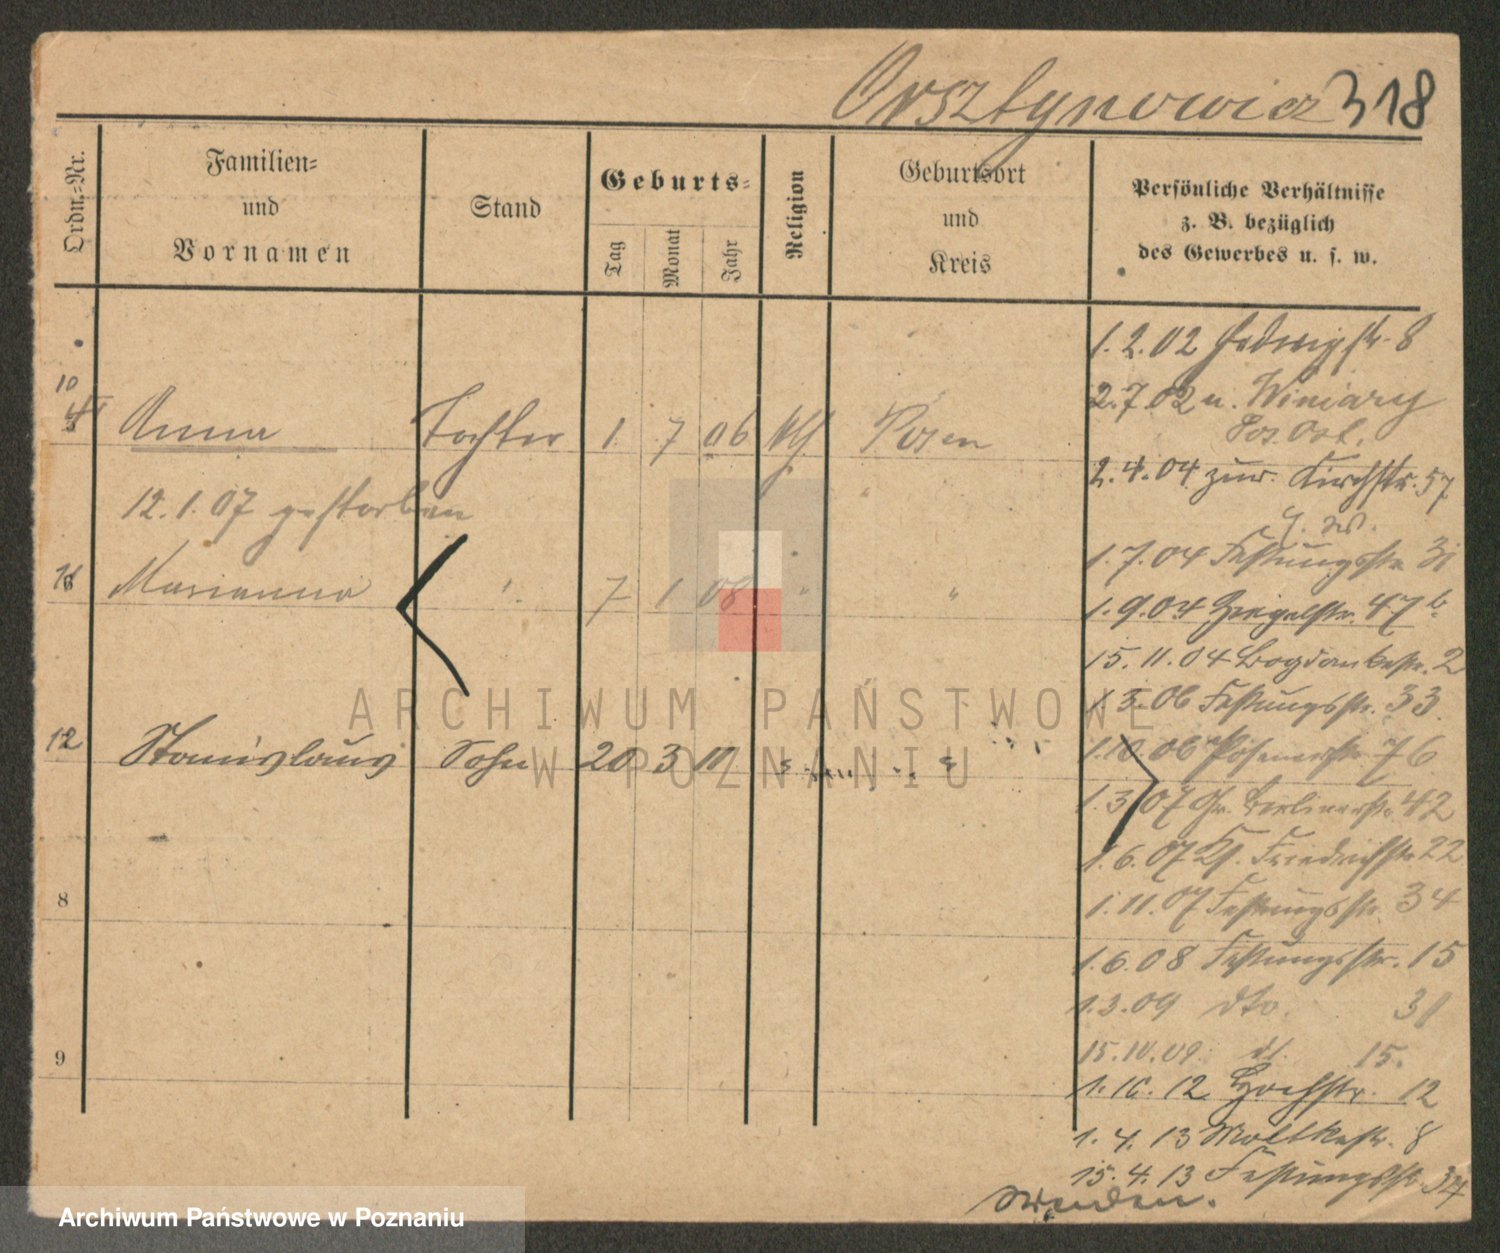 Orsztynowicz 318
Ordn.-Nr.
Familien-
und
Vornamen
Stand
Geburts-
Tag
Monat
Jahr
Religion
Geburtsort
und
Kreis
Persönliche Verhältnisse
z. B. bezüglich
des Gewerbes u. s. w.
10
Anna Tochter 1. 7 06 kth. Posen
12.1.07 gestorben
11 Marianna " 7 1 08 " "
12 Stanislaus Sohn 20 3 10
8
9
1.2.02 Hedwigstr. 8
2.7.02 u. Winiary
Pos. Ost.
2.4.04 zur. Kirchstr. 57
1.7.04 Festungsstr. 31
1.9.04 Ziegelstr. 47 b.
15.11.04 Bogdankastr. 2
1.3.06 Festungsstr. 33
1.10.06 Posenerstr. 76
1.3.07 Gr. Berlinerstr. 42
1.6.07 Kl. Friedrichstr. 22
1.11.07 Festungsstr. 34
1.6.08 Festungsstr. 15
1.3.09 dto. 31
15.10.09. dt. 15.
1.10.12 Hochstr. 12
1.4.13 Moltkestr. 8
15.4.13 Festungsstr. 34
wenden.
ARCHIWUM PAŃSTWOWE
W POZNANIU
Archiwum Państwowe w Poznaniu